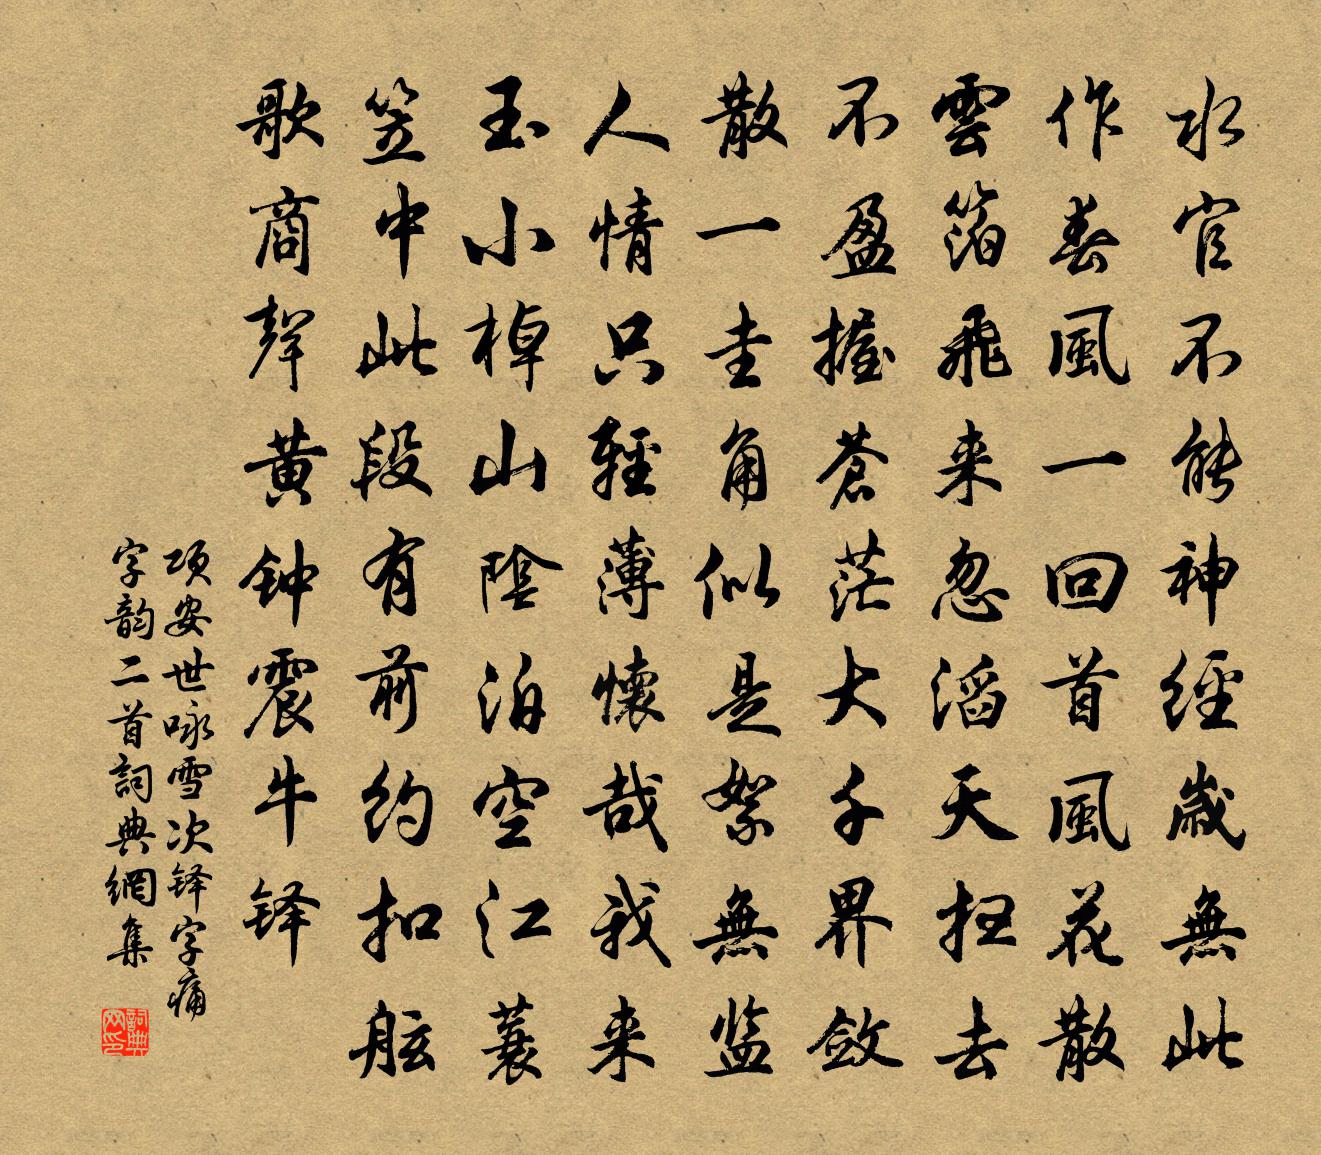 水官不能神經歲無此
作春風一回首風花散
雲箔飛来忽滔天扫去
不盈握蒼茫大千界斂
散一圭角似是絮無监
人情只輕薄懷哉我来
玉小棹山陰泊空江蓑
笠中此段有前约扣舷
歌商聲黄钟震牛铎
项安世咏雪次铎字痛
字韵二首詞典網集
詞典网印